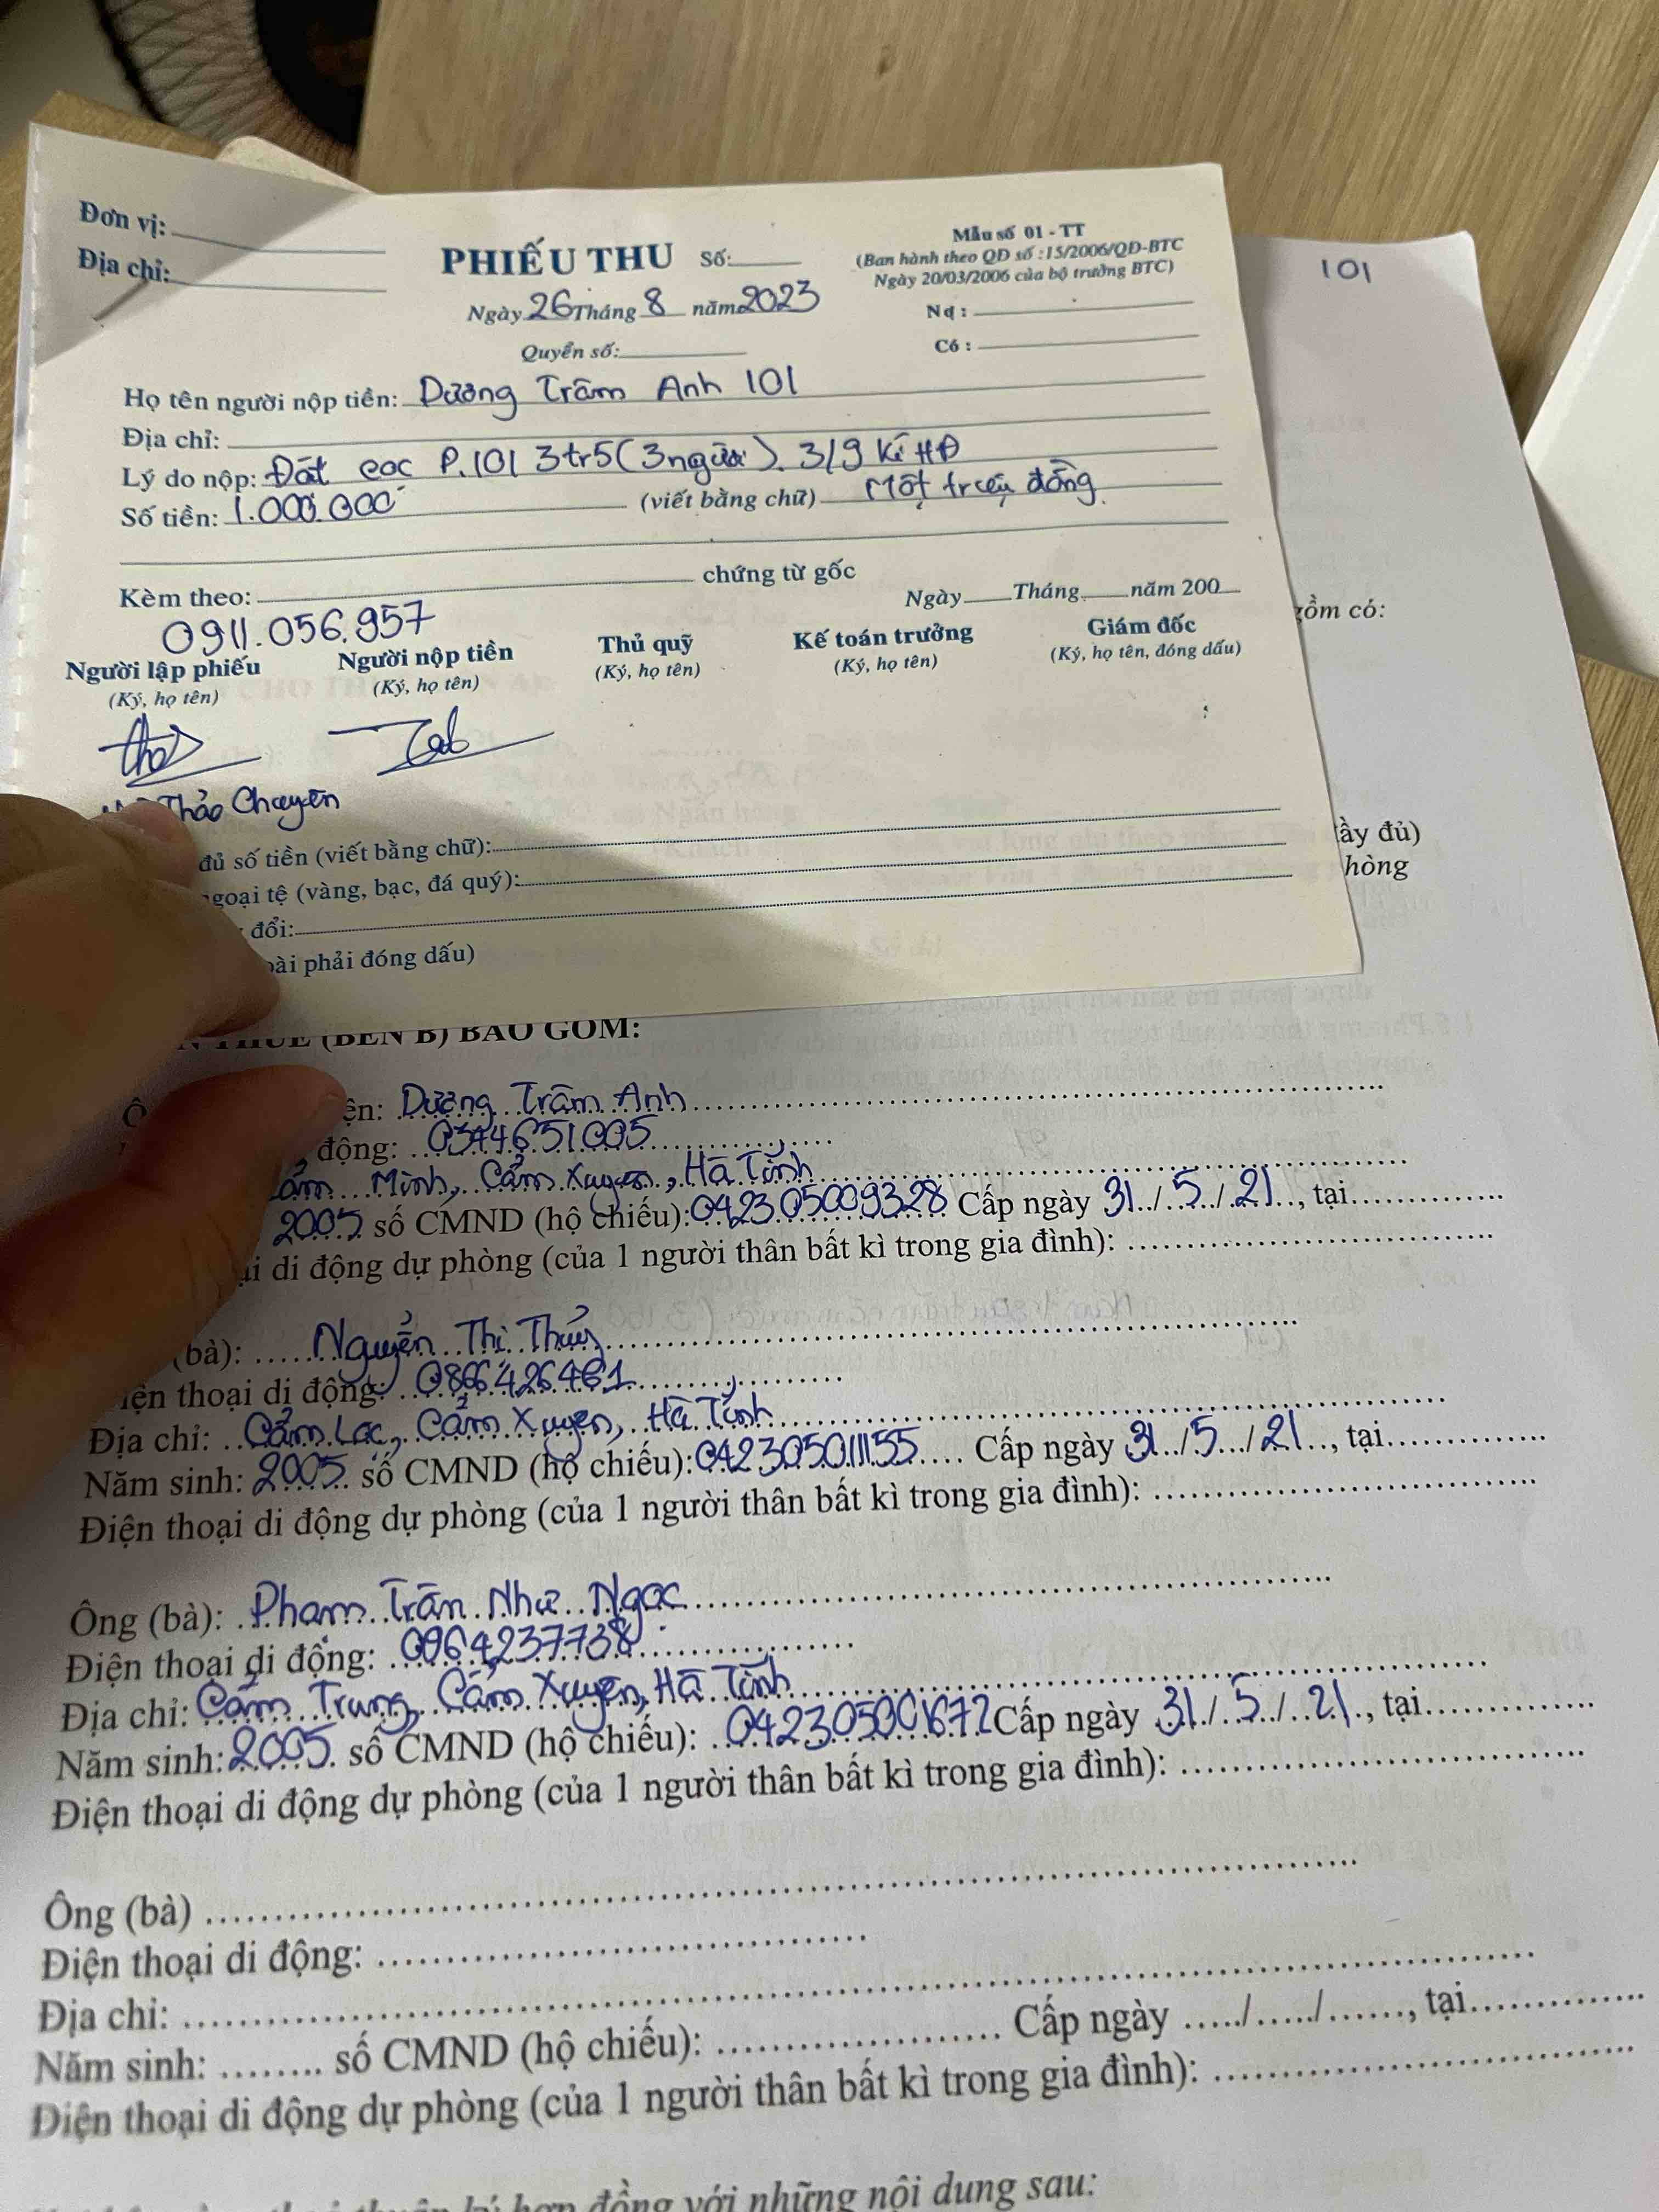 Đơn vị:
Địa chỉ:
PHIẾU THU Số:
Mẫu số 01 - TT
(Ban hành theo QĐ số :15/2006/QĐ-BTC
Ngày 20/03/2006 của bộ trưởng BTC)
Ngày 26 Tháng 8 năm 2023
Nợ :
Quyển số:
Có :
Họ tên người nộp tiền: Dương Trâm Anh 101
Địa chỉ:
Lý do nộp: Đặt cọc P.101 3tr5 (3 người). 3/9 kí HĐ
Số tiền: 1.000.000 (viết bằng chữ) Một triệu đồng.
Kèm theo: chứng từ gốc
Ngày Tháng năm 200
0911.056.957
Người lập phiếu Người nộp tiền Thủ quỹ Kế toán trưởng Giám đốc
(Ký, họ tên) (Ký, họ tên) (Ký, họ tên) (Ký, họ tên) (Ký, họ tên, đóng dấu)
Thảo Chuyên
đủ số tiền (viết bằng chữ):
ngoại tệ (vàng, bạc, đá quý):
đổi:
phải đóng dấu)
101
gồm có:
đầy đủ)
THUÊ (BÊN B) BAO GỒM:
Dương Trâm Anh
động: 0344651005
Cẩm Minh, Cẩm Xuyên, Hà Tĩnh
2005 số CMND (hộ chiếu): 042305009328 Cấp ngày 31/5/21, tại
di động dự phòng (của 1 người thân bất kì trong gia đình):
(bà): Nguyễn Thị Thủy
điện thoại di động: 0866426461
Địa chỉ: Cẩm Lạc, Cẩm Xuyên, Hà Tĩnh
Năm sinh: 2005 số CMND (hộ chiếu): 042305011155 Cấp ngày 31/5/21, tại
Điện thoại di động dự phòng (của 1 người thân bất kì trong gia đình):
Ông (bà): Phạm Trần Như Ngọc
Điện thoại di động: 0964237738
Địa chỉ: Cẩm Trung, Cẩm Xuyên, Hà Tĩnh
Năm sinh: 2005 số CMND (hộ chiếu): 042305001672 Cấp ngày 31/5/21, tại
Điện thoại di động dự phòng (của 1 người thân bất kì trong gia đình):
Ông (bà)
Điện thoại di động:
Địa chỉ:
Năm sinh: số CMND (hộ chiếu): Cấp ngày ...../...../......, tại
Điện thoại di động dự phòng (của 1 người thân bất kì trong gia đình):
hợp đồng với những nội dung sau: